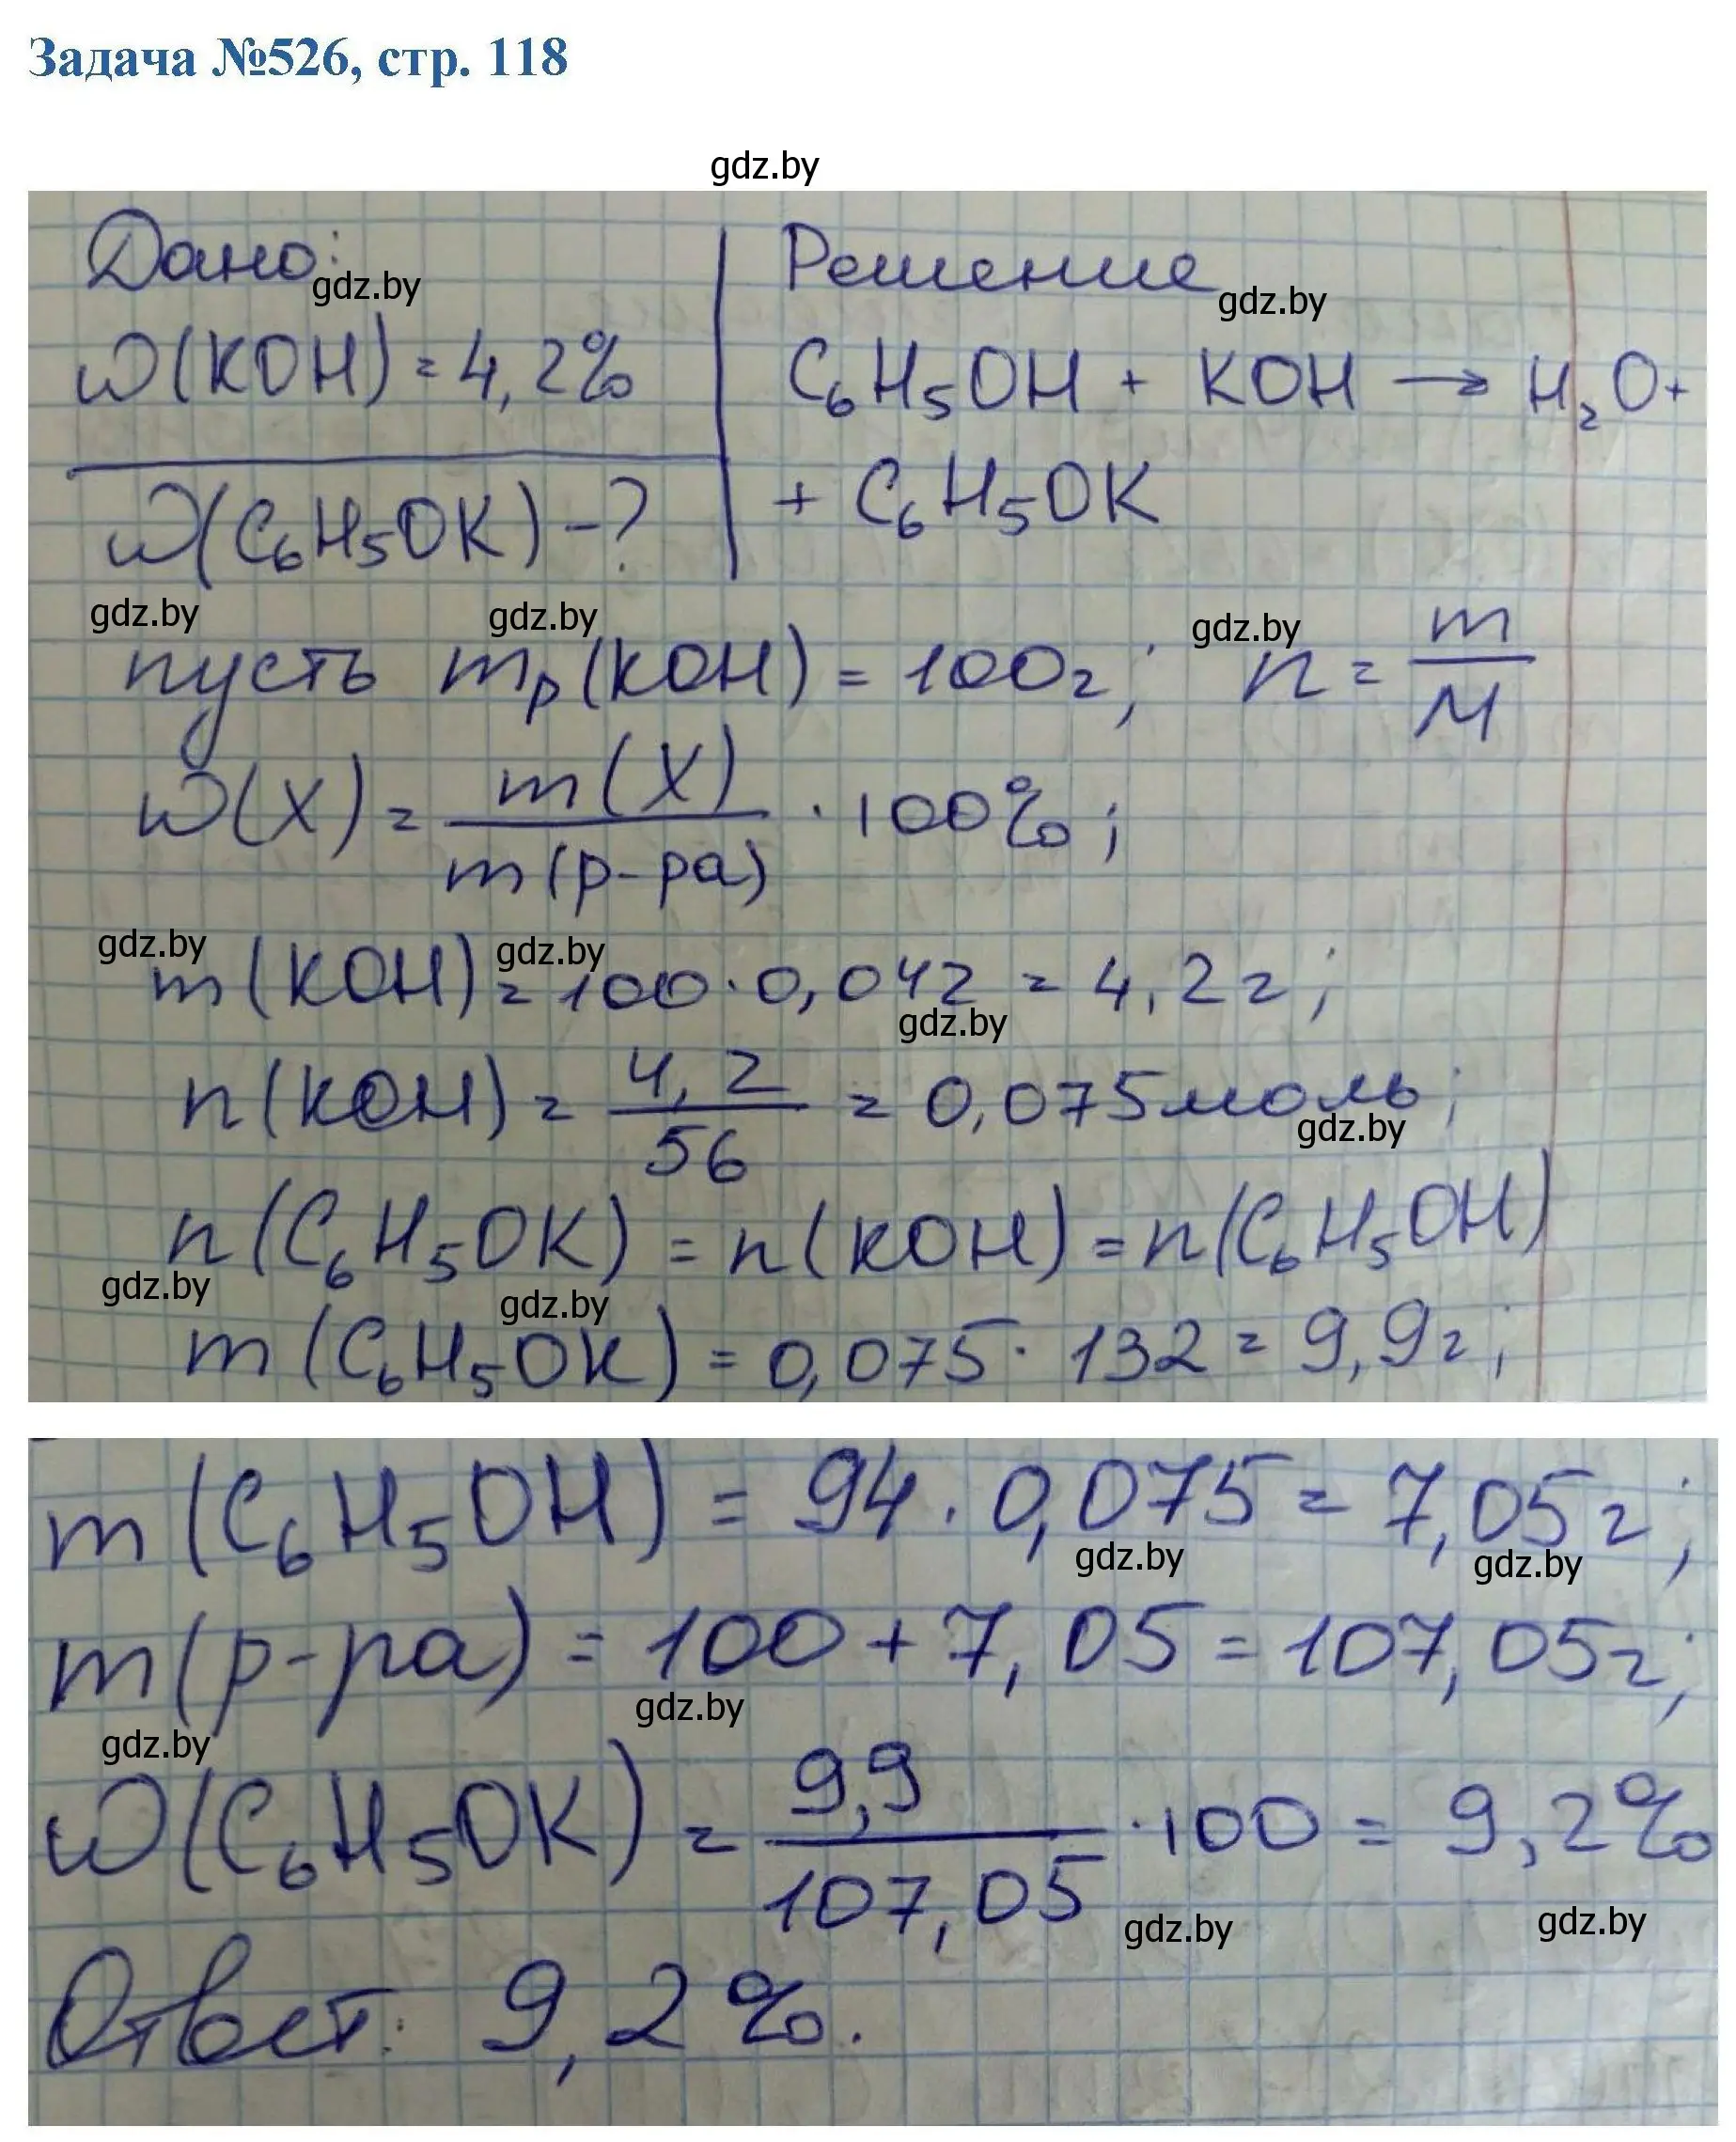 Задача №526, стр. 118
gdz.by
Дано: Решение
gdz.by gdz.by
W(KOH) = 4,2% C₆H₅OH + KOH → H₂O +
W(C₆H₅OK) - ? + C₆H₅OK
gdz.by gdz.by gdz.by
пусть mр(KOH) = 100г; n = m/M
W(X) = m(X)/m(р-ра) · 100%;
gdz.by gdz.by
m(KOH) = 100 · 0,042 = 4,2г;
gdz.by
n(KOH) = 4,2/56 = 0,075моль;
gdz.by
n(C₆H₅OK) = n(KOH) = n(C₆H₅OH)
gdz.by gdz.by
m(C₆H₅OK) = 0,075 · 132 = 9,9г;
m(C₆H₅OH) = 94 · 0,075 = 7,05г;
gdz.by gdz.by
m(р-ра) = 100 + 7,05 = 107,05г;
gdz.by gdz.by
W(C₆H₅OK) = 9,9/107,05 · 100 = 9,2%
gdz.by gdz.by
Ответ: 9,2%.